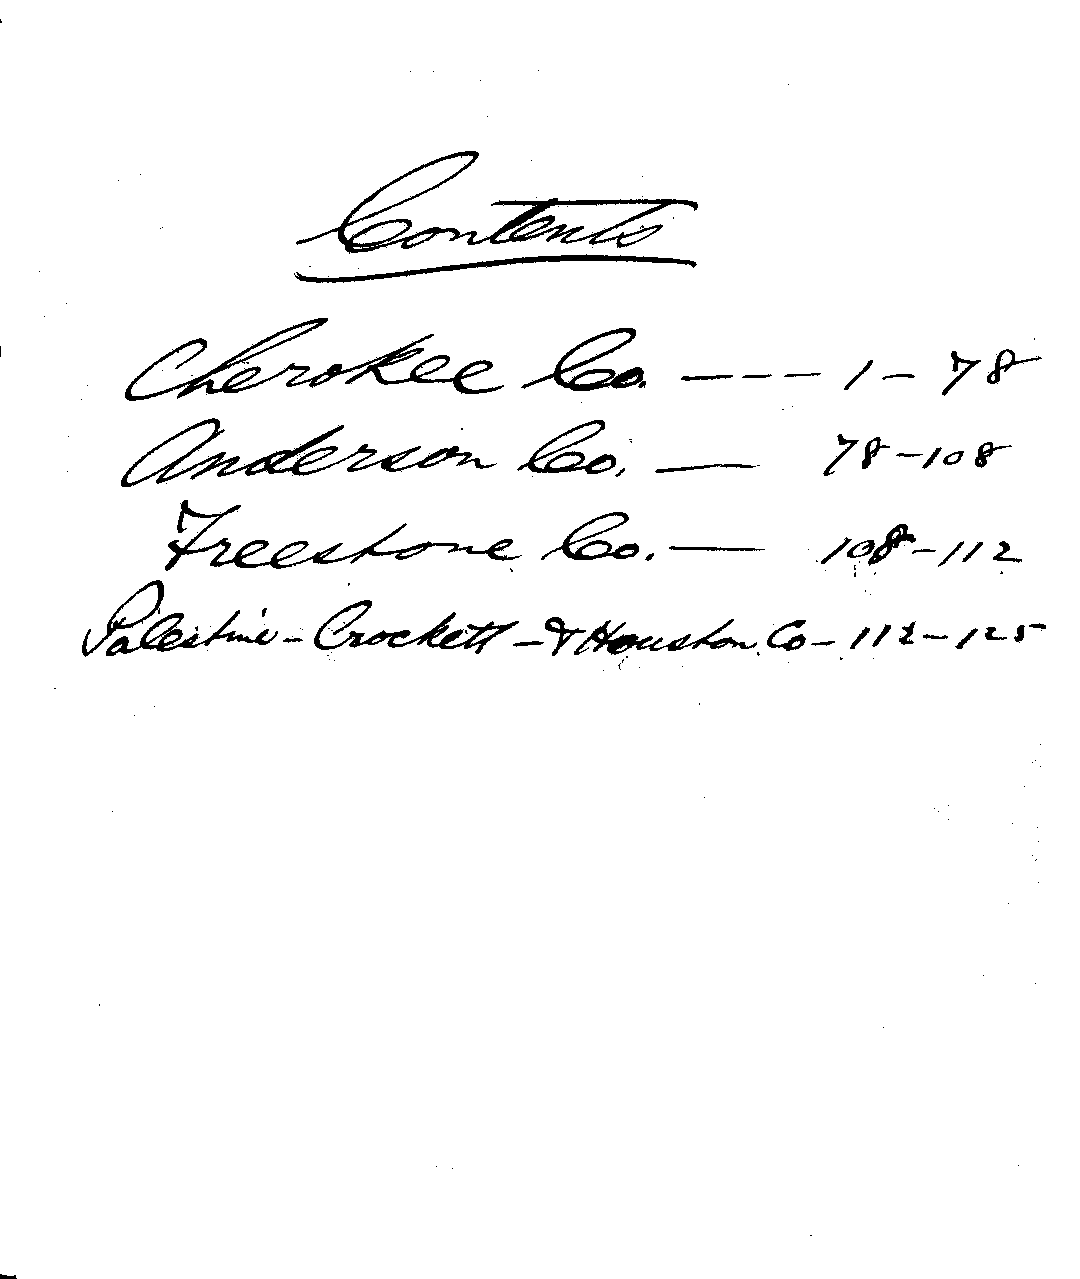 Contents
Cherokee Co. --- 1 - 78
Anderson Co. — 78-108
Freestone Co. — 108-112
Palestine - Crockett - & Houston Co - 112 - 125